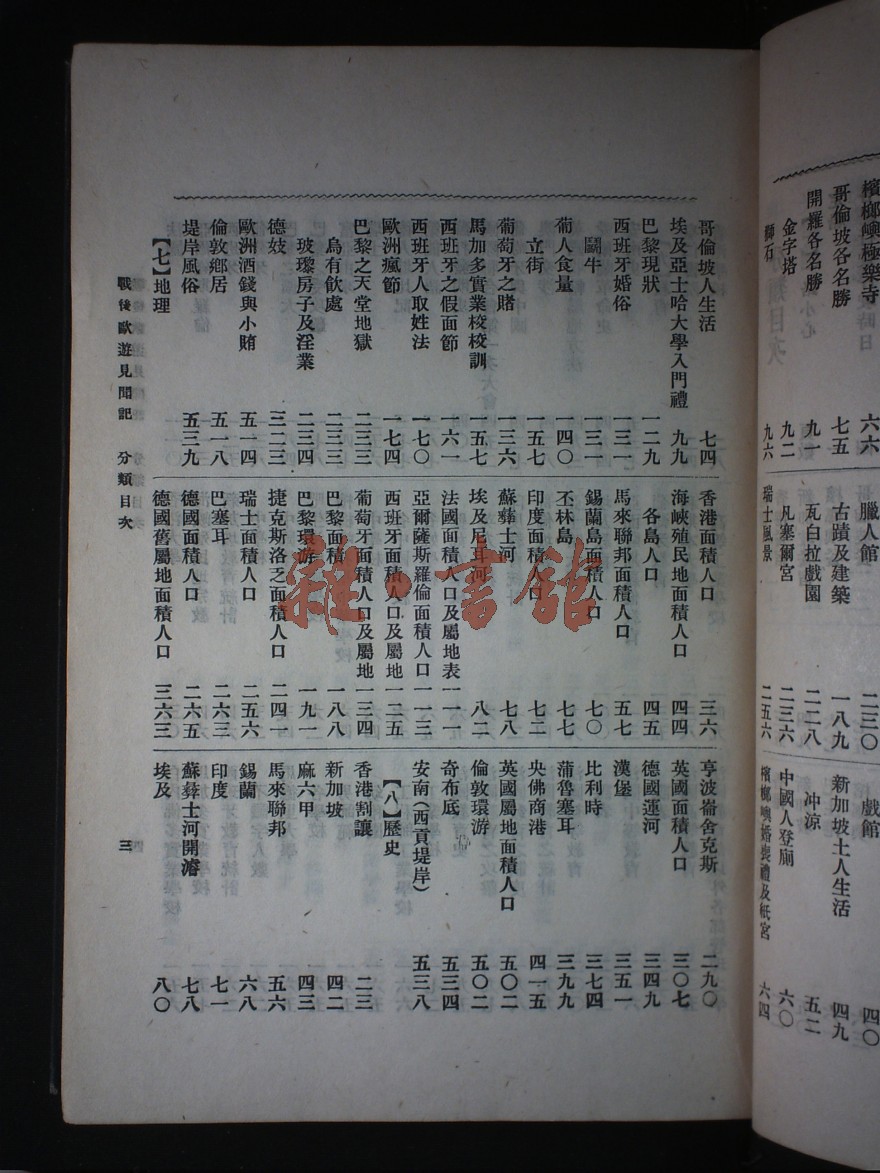 檳榔嶼極樂寺 六六
哥倫坡各名勝 七五
開羅各名勝 九一
金字塔 九二
獅石 九六
臘人館 二三〇
古蹟及建築 一八九
瓦白拉戲園 二二八
凡塞爾宮 二三六
瑞士風景 二五六
戲館 四〇
新加坡土人生活 四九
冲涼 五二
中國人登廟 六〇
檳榔嶼婚喪禮及紙宮 六四
哥倫坡人生活 七四
埃及亞士哈大學入門禮 九九
巴黎現狀 一二九
西班牙婚俗 一三一
鬭牛 一三一
葡人食量 一四〇
立街 一五七
葡萄牙之賭 一三六
馬加多實業校校訓 一五七
西班牙之假面節 一六一
西班牙人取姓法 一七〇
歐洲瘋節 一七四
巴黎之天堂地獄 二三三
烏有飲處 二三三
玻璨房子及淫業 二三四
德妓 三二三
歐洲酒錢與小賄 五一四
倫敦鄉居 五一八
堤岸風俗 五三九
【七】地理
香港面積人口 三六
海峽殖民地面積人口 四四
各島人口 四五
馬來聯邦面積人口 五七
錫蘭島面積人口 七〇
丕林島 七七
印度面積人口 七二
蘇彝士河 七八
埃及尼耳河 八二
法國面積人口及屬地表 一一一
亞爾薩斯羅倫面積人口 一一三
西班牙面積人口及屬地 一二五
葡萄牙面積人口及屬地 一三四
巴黎面積人口 一八八
巴黎環游 一九一
捷克斯洛乏面積人口 二四一
瑞士面積人口 二五六
巴塞耳 二六三
德國面積人口 二六五
德國舊屬地面積人口 三六三
亨波崙舍克斯 二九〇
英國面積人口 三〇七
德國運河 三四九
漢堡 三五一
比利時 三七四
蒲魯塞耳 三九九
央佛商港 四一五
英國屬地面積人口 五〇二
倫敦環游 五〇二
奇布底 五三四
安南(西貢堤岸) 五三八
【八】歷史
香港割讓 二三
新加坡 四二
麻六甲 四三
馬來聯邦 五六
錫蘭 六八
印度 七一
蘇彝士河開濬 七八
埃及 八〇
戰後歐遊見聞記 分類目次
三
雜·書館